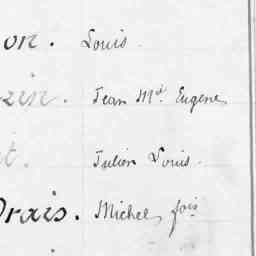 on. Louis
zin. Jean Md. Eugene
t. Julien Louis.
Drais. Michel fois